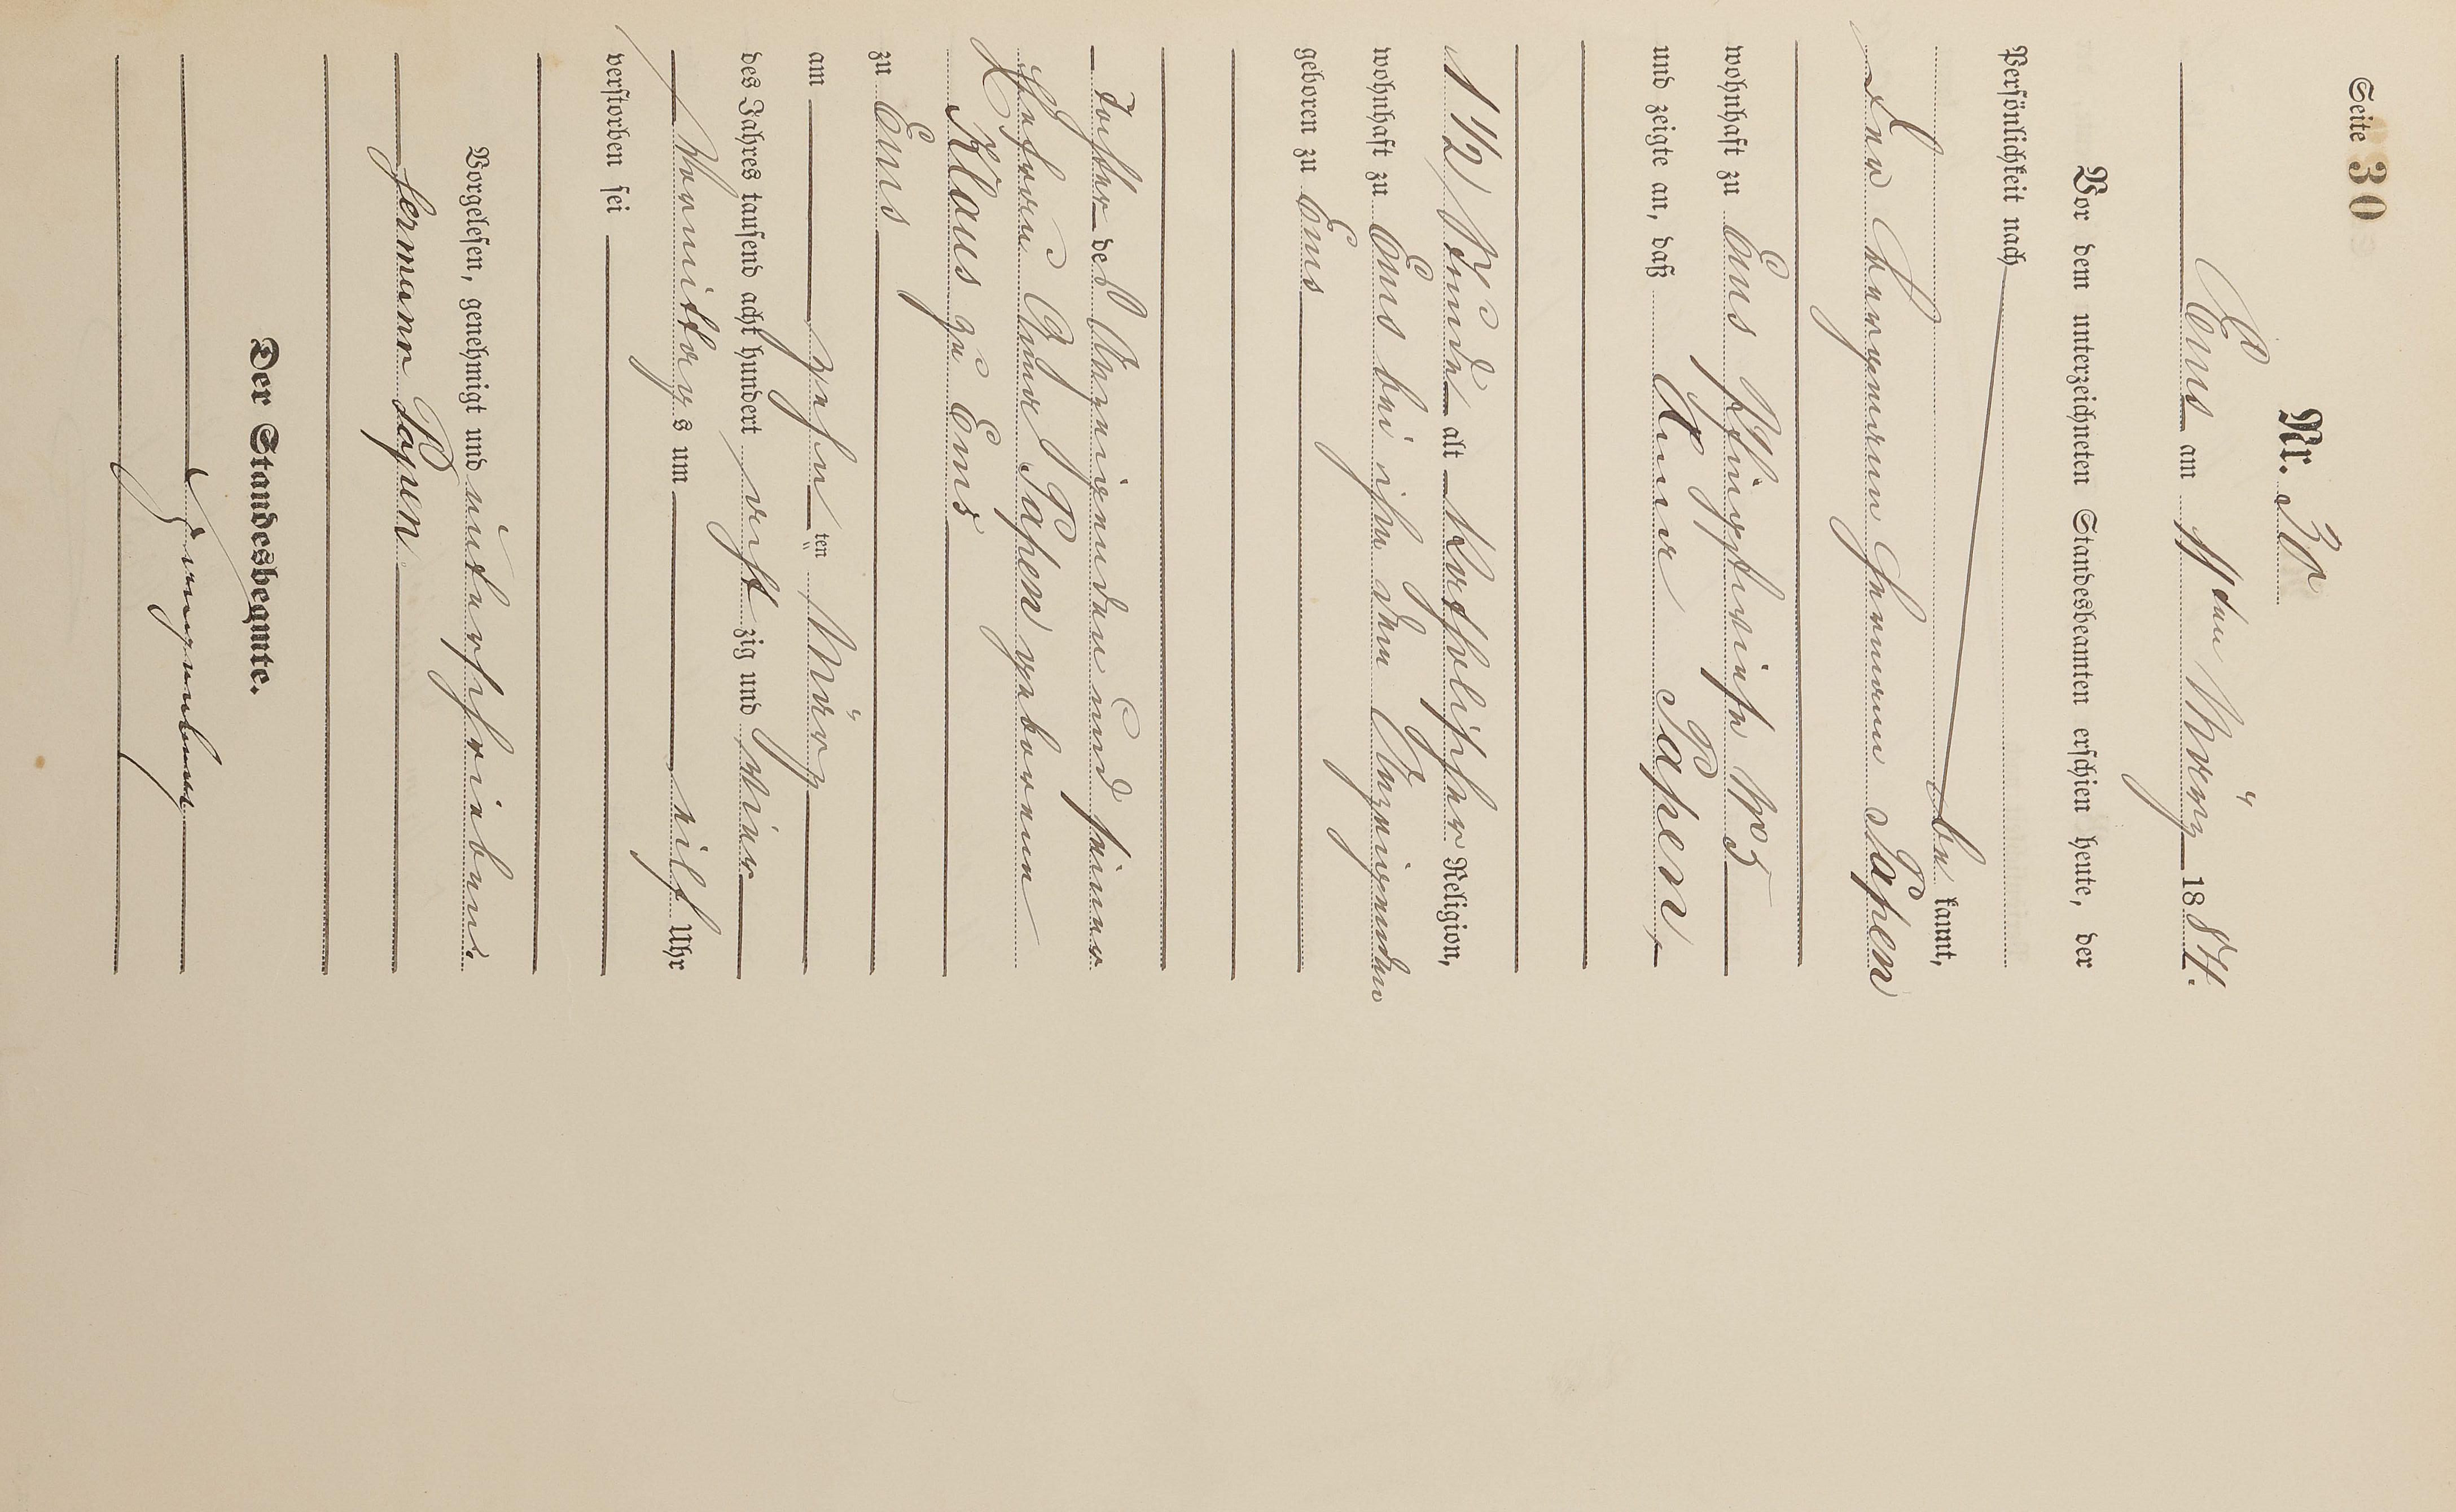 Seite 30
Nr. 30
Ems am 11ten März 1884.
Vor dem unterzeichneten Standesbeamten erschien heute, der
Persönlichkeit nach
be kannt,
der Bergmann Hermann Papen
wohnhaft zu Ems
und zeigte an, daß Anna Papen,
1 1/2 Stunde alt katholischer Religion,
wohnhaft zu Ems bei ihm dem Anzeigenden
geboren zu Ems
Tochter des Anzeigenden und seiner
Ehefrau Anna Papen geborenen
Klaus zu Ems
zu Ems
am zehn ten März
des Jahres tausend acht hundert acht zig und vier
Vormittags um elf Uhr
verstorben sei
Vorgelesen, genehmigt und unterschrieben.
Hermann Papen
Der Standesbeamte.